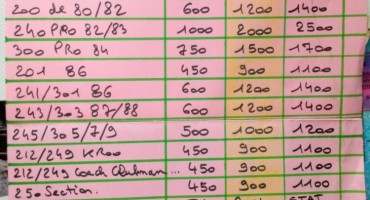 200 de 80/82 600 1200 1400
240 PRO 82/83 1000 2000 2500
300 PRO 84 750 1500 1700
201 86 450 900 1100
241/301 86 600 1200 1400
243/303 87/88 600 1200 1400
245/305/7/9 500 1000 1200
212/249 KROO 450 900 1100
212/249 Coach Clubman ... 450 900 1100
250 Section. 450 900 1100